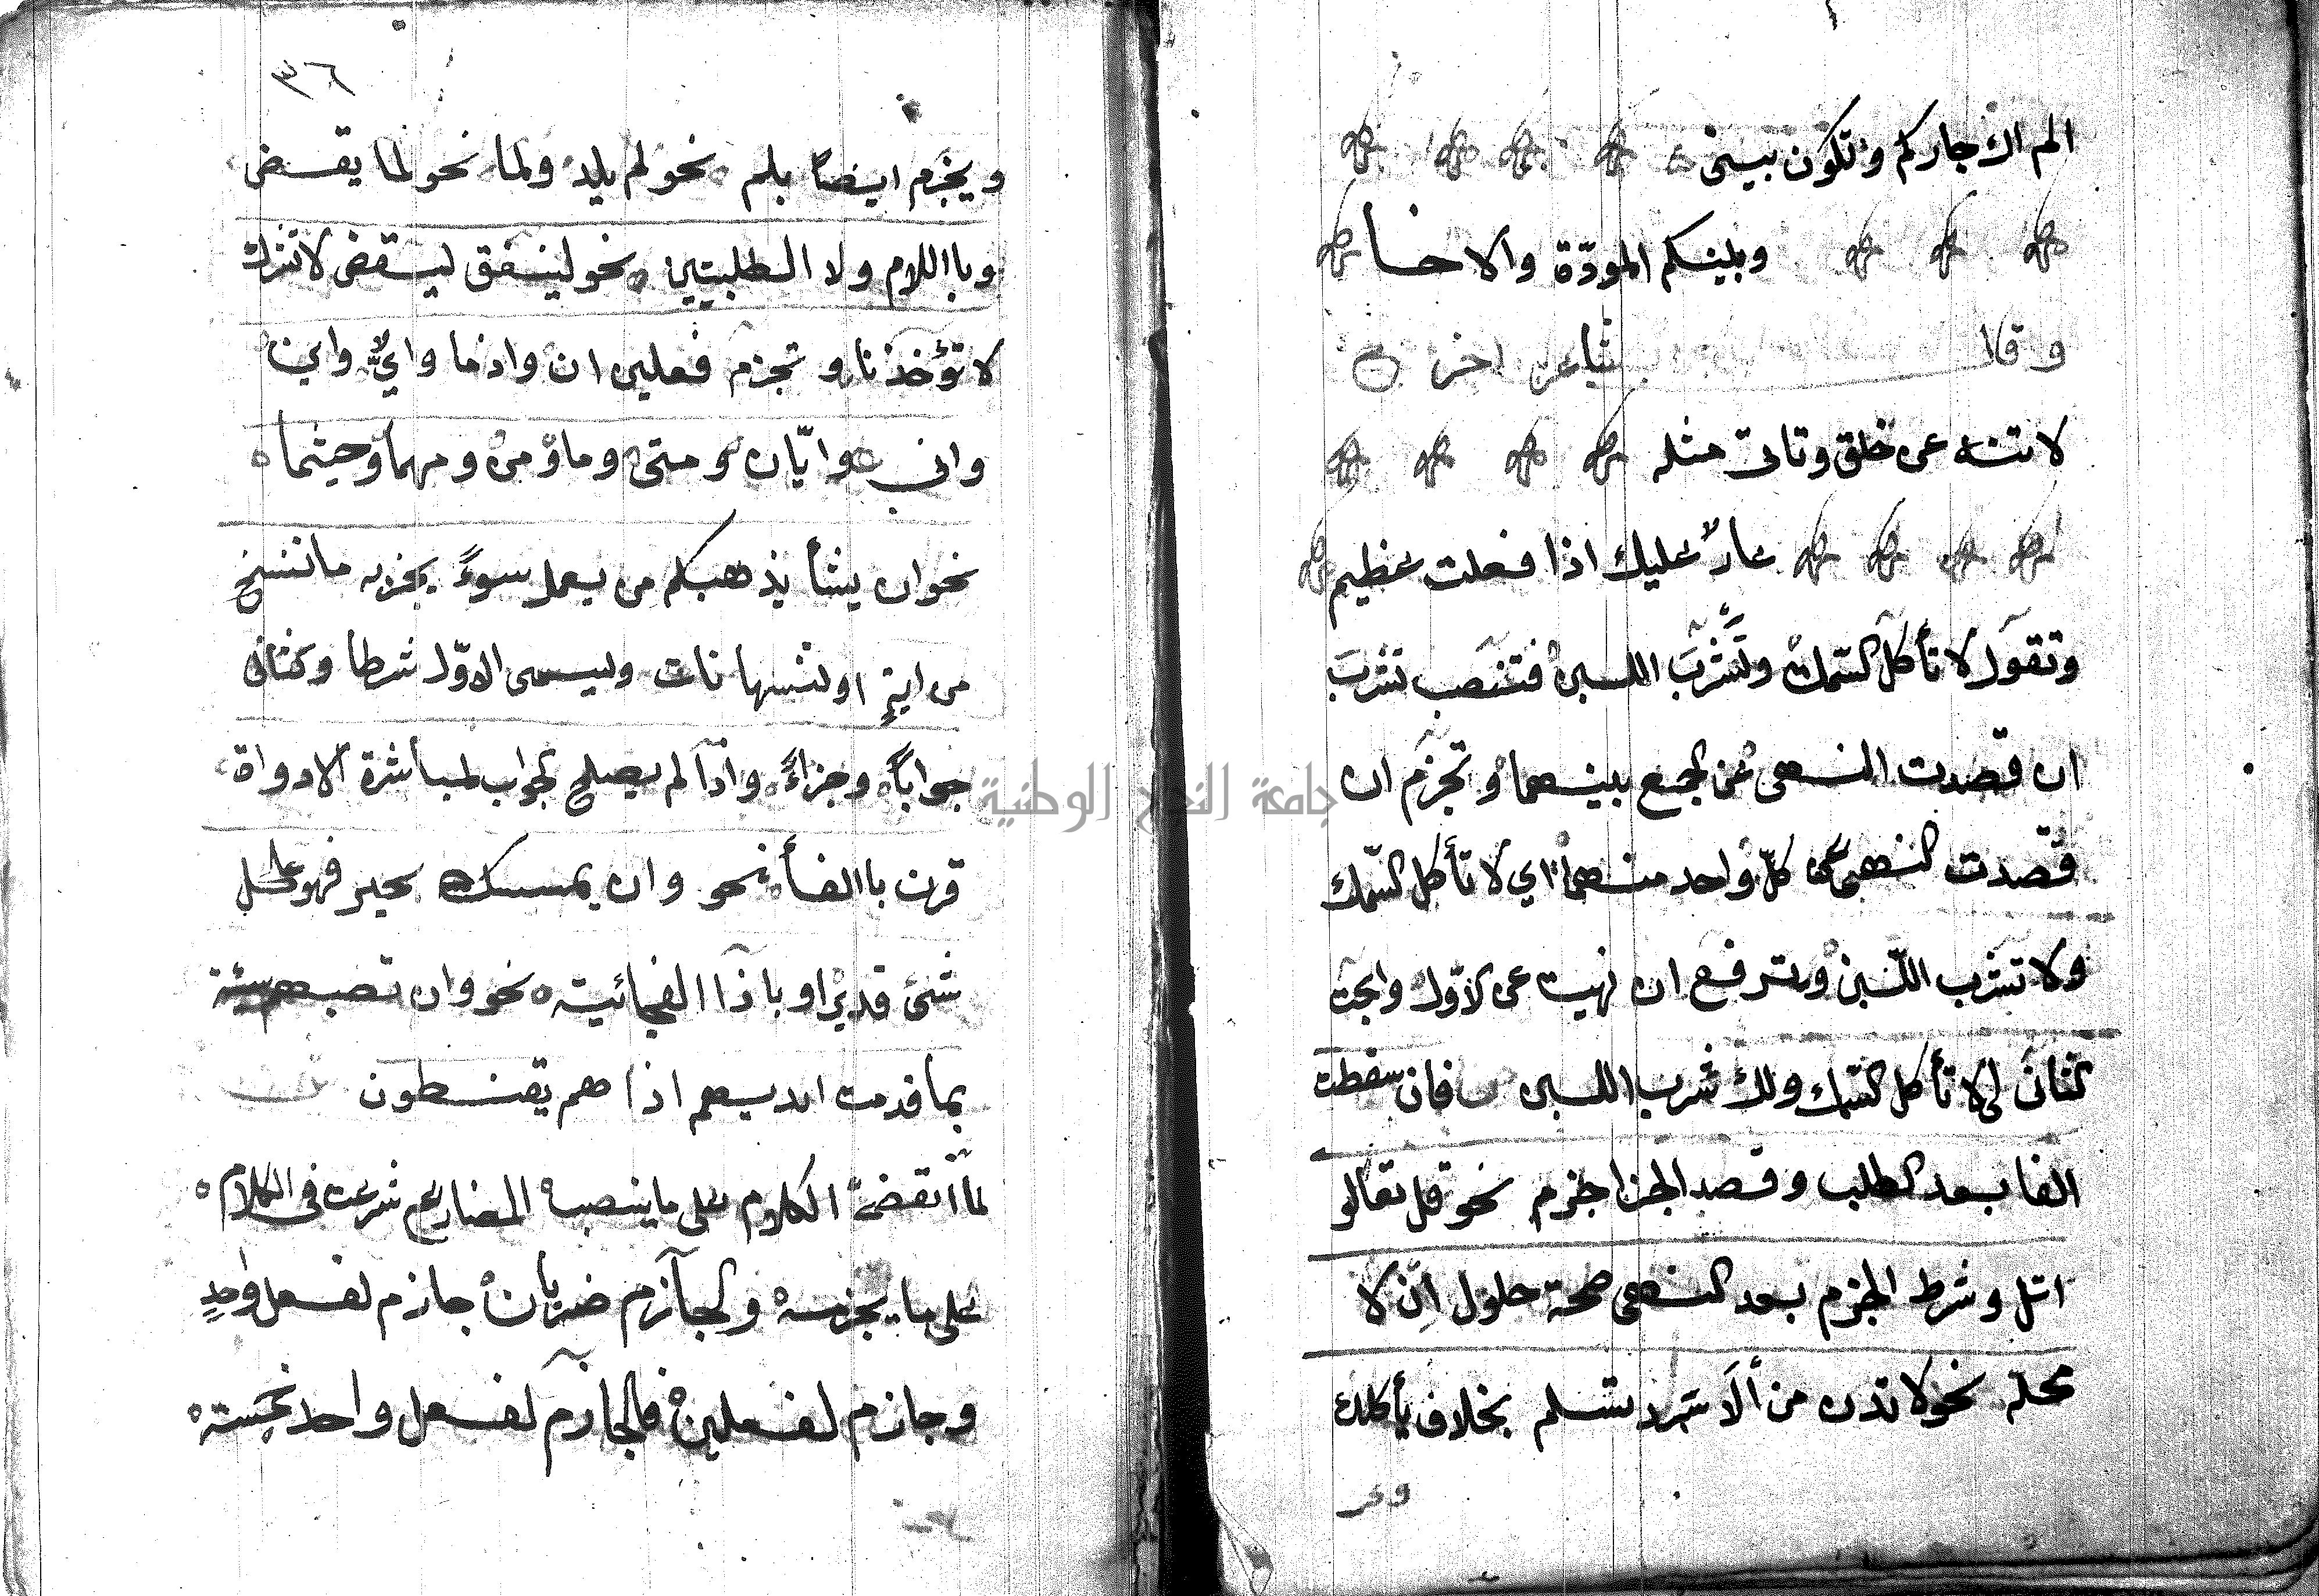 الم اك جاركم وتكون بيني
وبينكم المودّة والاخا
وقال شاعر اخر
لا تنه عن خلق وتاتي مثله
عارٌ عليك اذا فعلت عظيم
وتقول لا تأكل السمك وتشربَ اللبن فتنصب تشربَ
ان قصدت النهى عن الجمع بينهما وتجزم ان
قصدت النهي عن كلّ واحد منهما اي لا تأكل السمك
ولا تشرب اللبن وترفع ان نهيت عن الاوّل وابحت
الثاني اي لا تأكل السمك ولك شرب اللبن فان سقطت
الفا بعد الطلب وقصد الجزا جزم نحو قل تعالو
اتل وشرط الجزم بعد النهى صحة حلول اِن لا
محله نحو لا تدن من ألاَسَد تسلم بخلاف يأكلك
ويجزم
٣٦
ويجزم ايضا بلم نحو لم يلد ولما نحو لما يقض
وبااللام ولا الطلبيتين نحو لينفق ليقض لا تشرك
لا تؤخذنا وتجزم فعلين ان واذما وايٌّ واين
واني وايّان ومتى وما ومن ومهما وحيثما
نحو ان يشأ يذهبكم من يعمل سوءً يجز به ما ننسخ
من اية او ننسها نات وليسمى الاوّل شرطا والثاني
جواباً وجزاءً واذا لم يصلح الجواب لمباشرة الادواة
قرن باالفأ نحو وان يمسسك بخير فهو على كل
شئ قدير او باذا الفجائية نحو وان تصبهم سيئة
بما قدمت ايديهم اذا هم يقنطون
لما انقضى الكلام على ما ينصب المضارع شرعت في الكلام
على ما يجزمه والجازم ضربان جازم لفعل واحدٍ
وجازم لفعلين فالجازم لفعل واحد خمسة
جامعة النجاح الوطنية